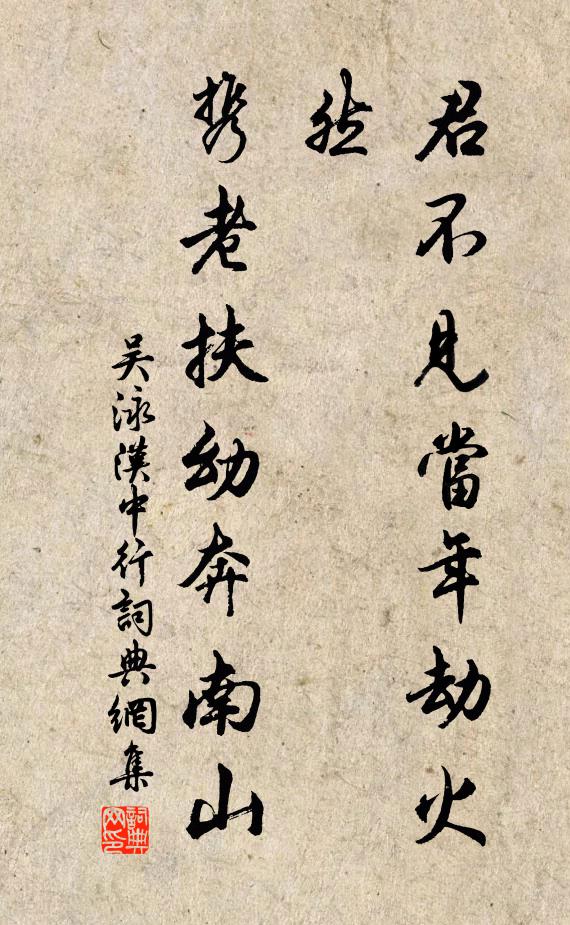 君不見當年劫火
然
携老扶幼奔南山
吴泳漢中行詞典網集
詞典網印